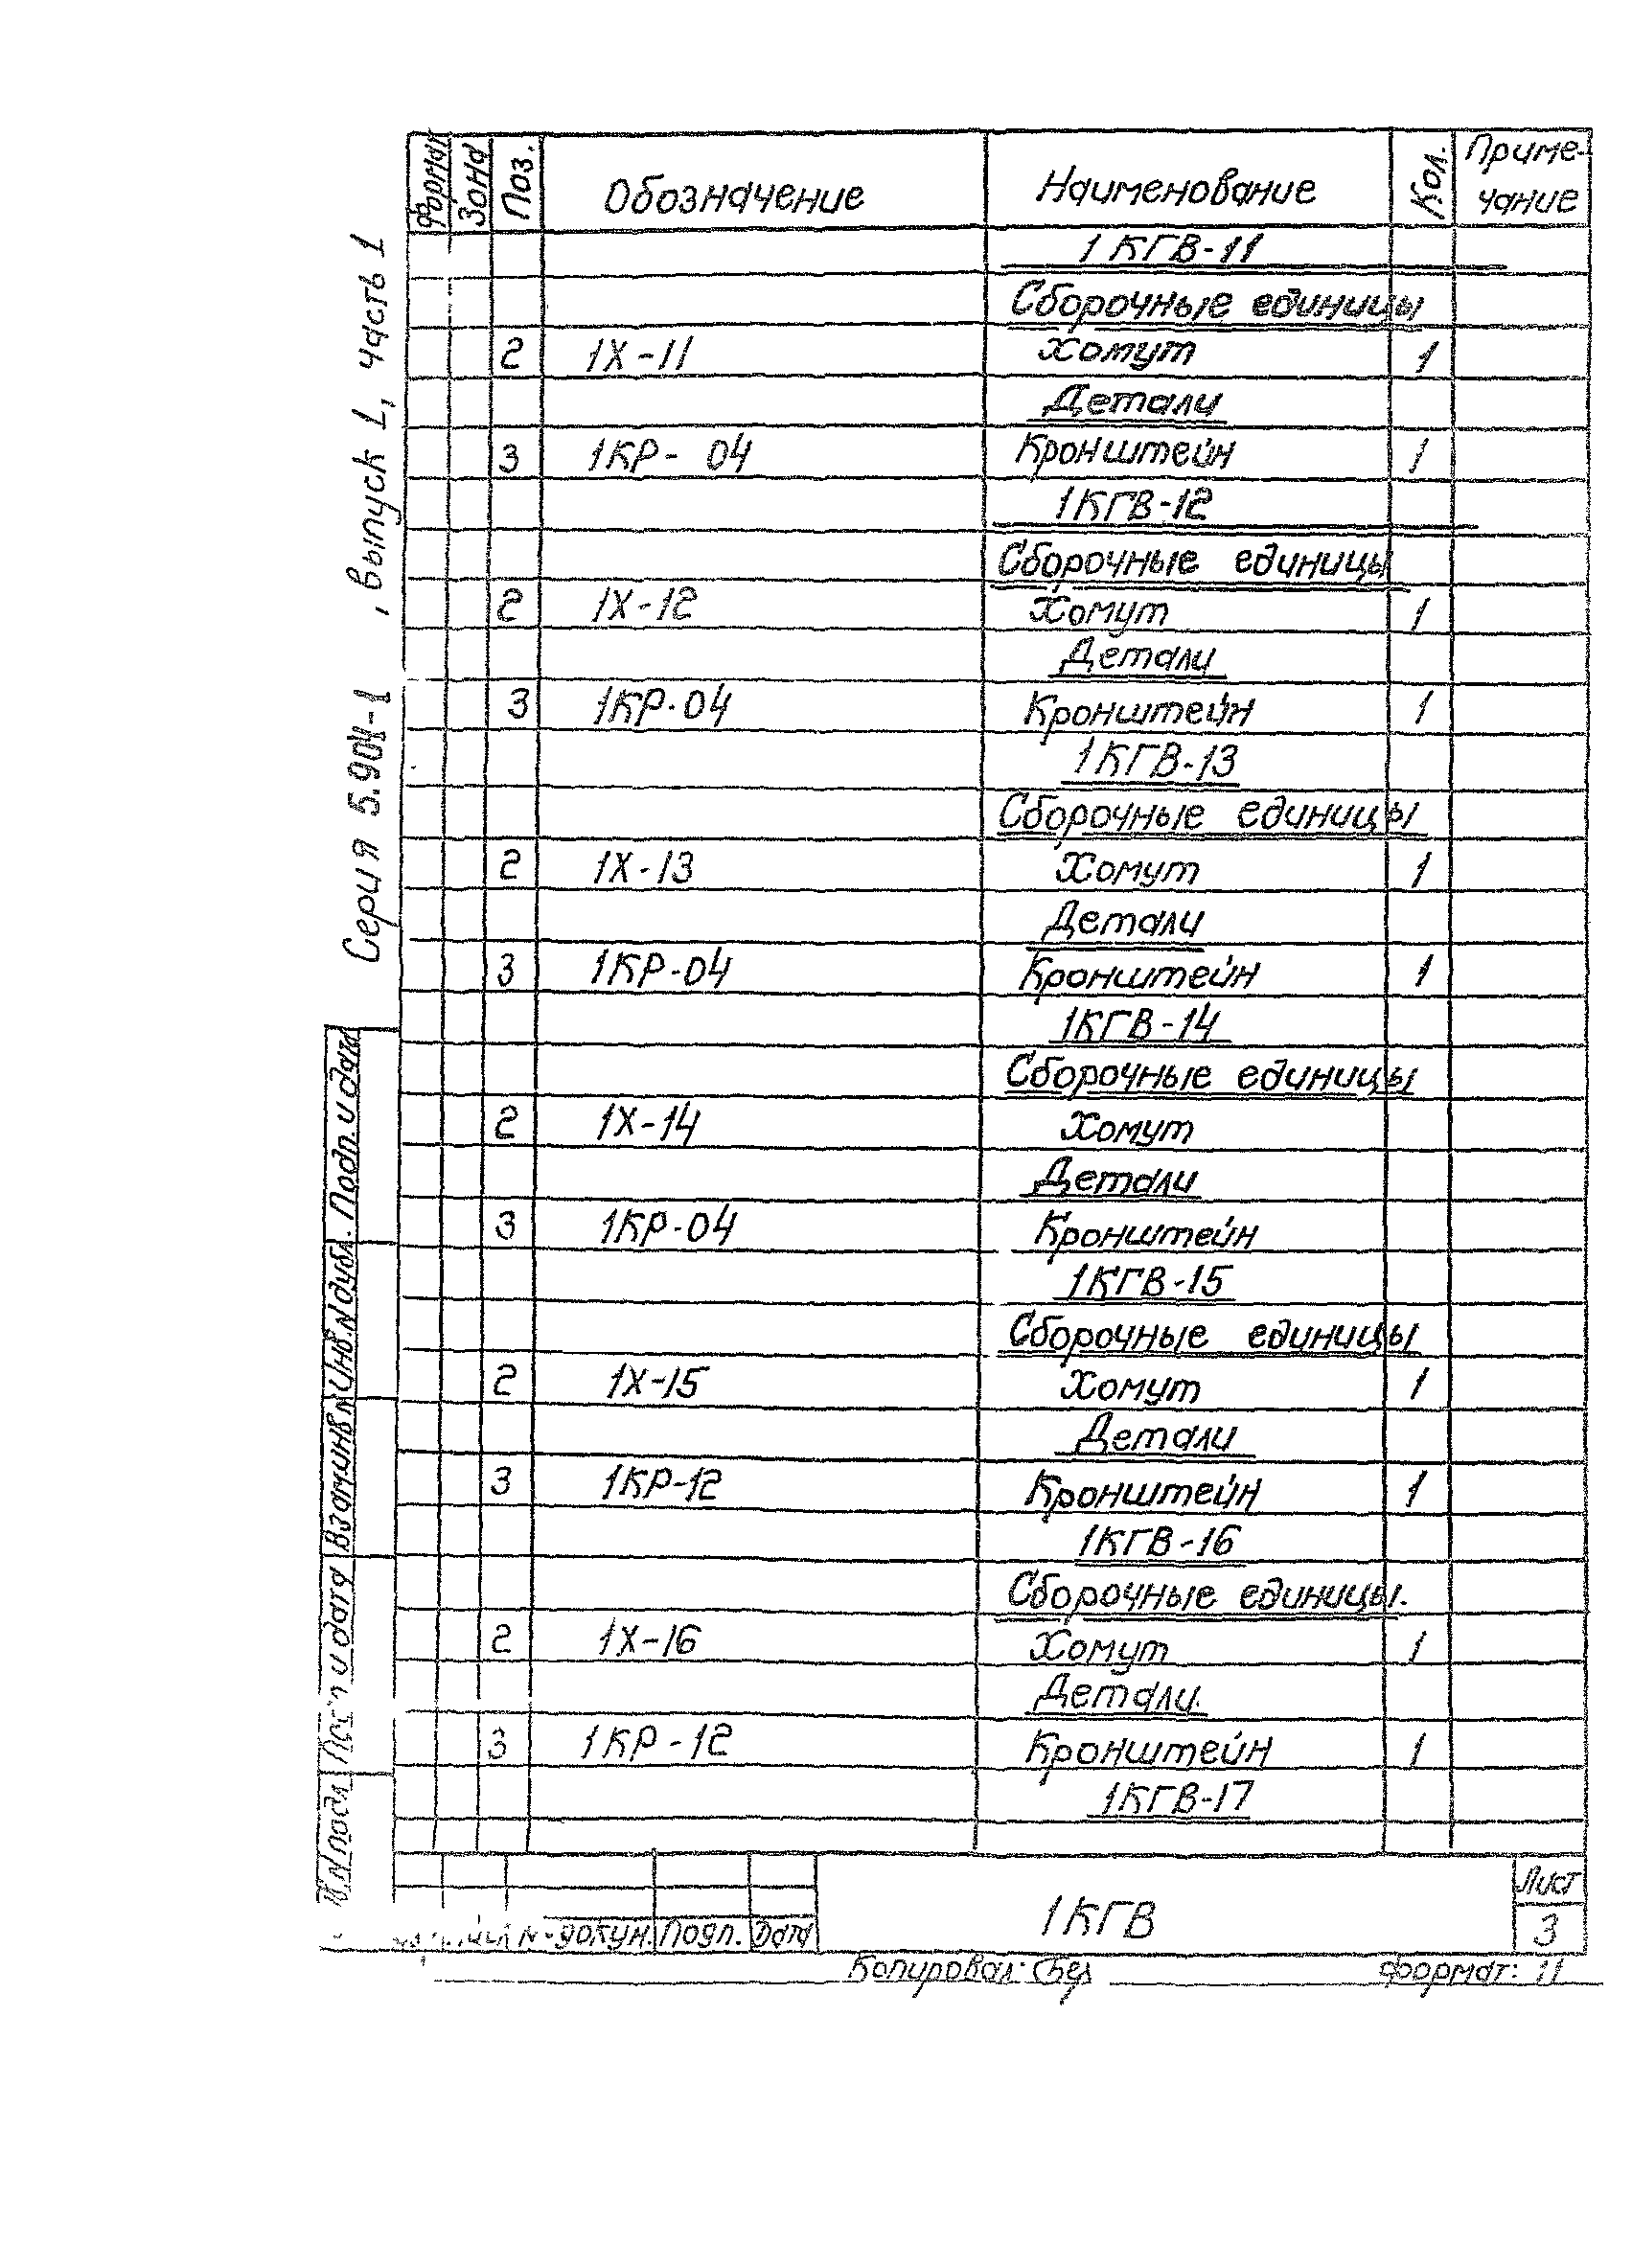 Серия 5.904-1 , выпуск 1, часть 1
Формат Зона Поз. Обозначение Наименование Кол. Приме-
чание
1КГВ-11
Сборочные единицы
2 1Х-11 Хомут 1
Детали
3 1КР- 04 Кронштейн 1
1КГВ-12
Сборочные единицы
2 1Х-12 Хомут 1
Детали
3 1КР-04 Кронштейн 1
1КГВ-13
Сборочные единицы
2 1Х-13 Хомут 1
Детали
3 1КР-04 Кронштейн 1
1КГВ-14
Сборочные единицы
2 1Х-14 Хомут
Детали
3 1КР-04 Кронштейн
1КГВ-15
Сборочные единицы
2 1Х-15 Хомут 1
Детали
3 1КР-12 Кронштейн 1
1КГВ-16
Сборочные единицы.
2 1Х-16 Хомут 1
Детали.
3 1КР-12 Кронштейн 1
1КГВ-17
Подп. и дата
Инв.N дубл.
Взам.инв.N
и дата
N подл
N докум. Подп. Дата
1КГВ
Лист
3
Копировал: формат: 11